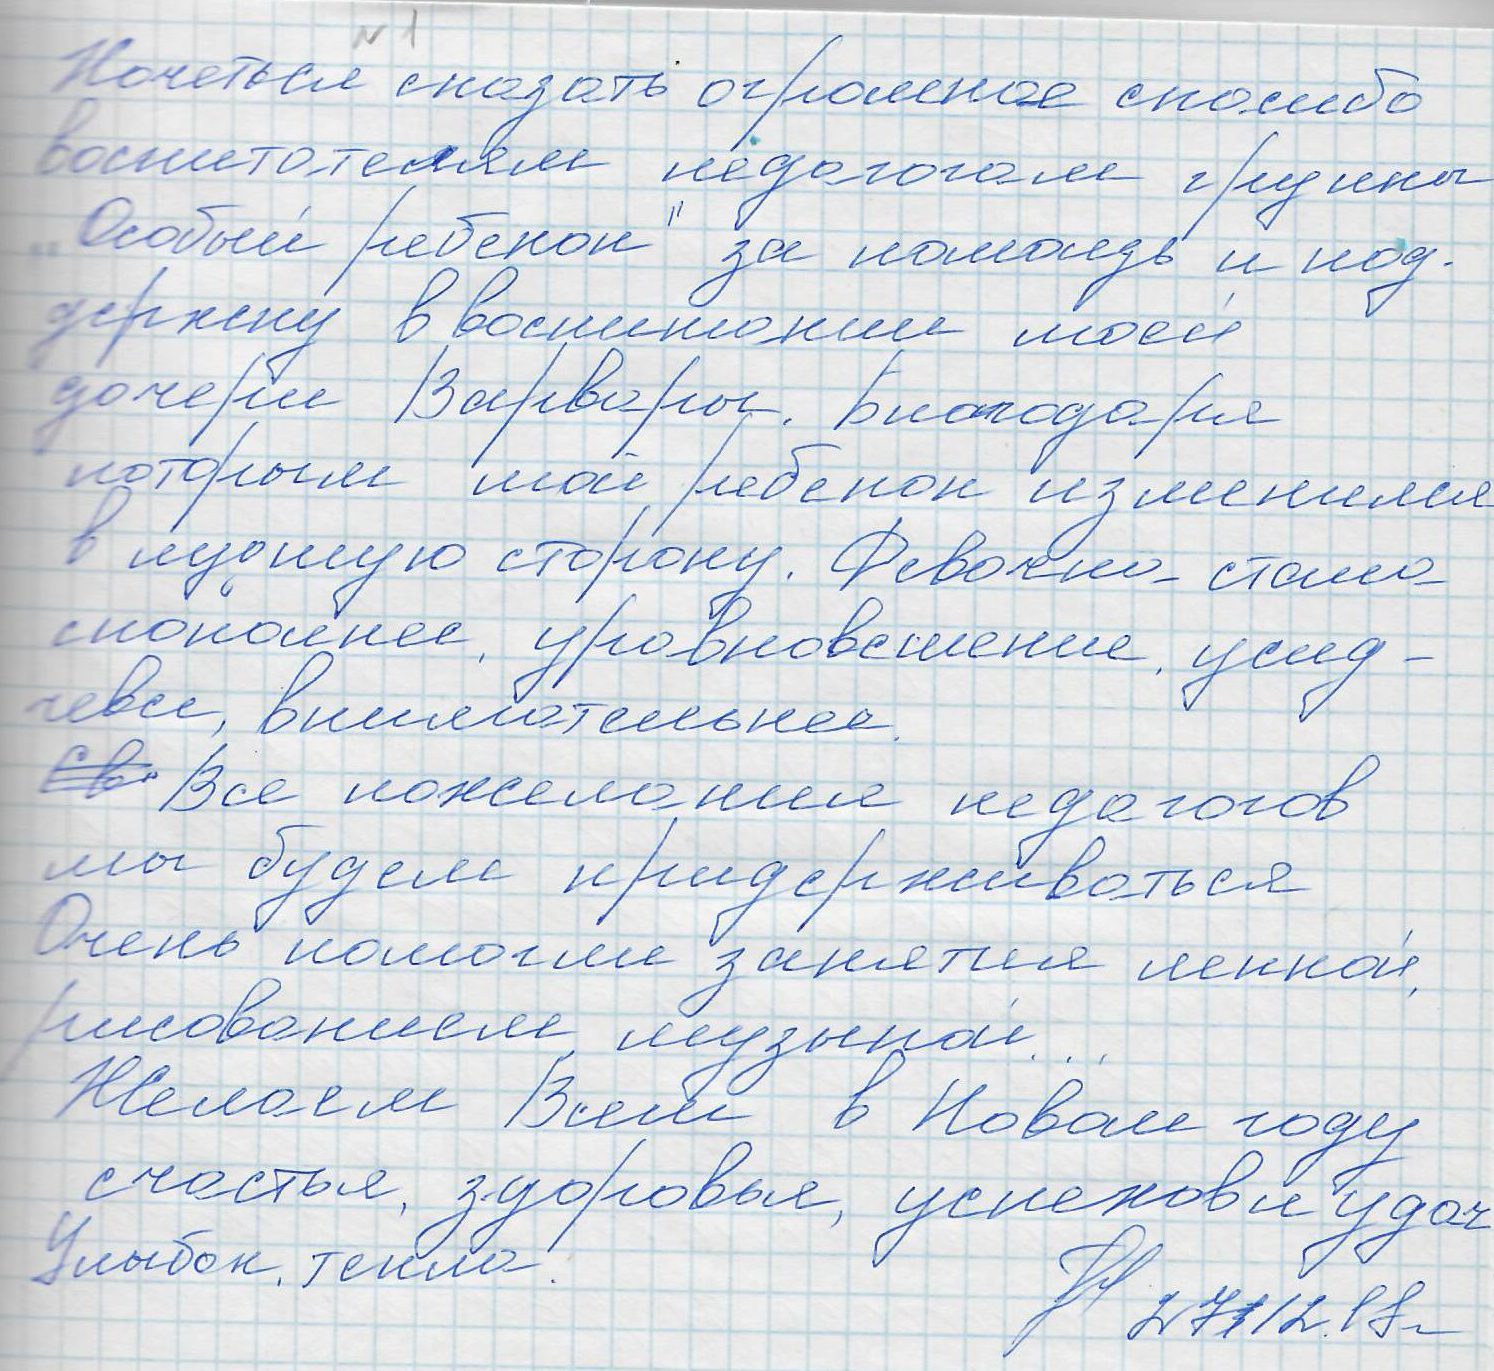 №1
Хочеться сказать огромное спасибо
воспитателям педагогам группы
"Особый ребенок" за помощь и под-
держку в воспитании моей
дочери Варвары. Благодаря
которым мой ребенок изменился
в лучшую сторону. Девочка стала
спокойнее, уровновешение, усид-
чева, внимательнее.
Все пожелания педагогов
мы будем придерживаться
Очень помогли занятия лепкой,
рисованием, музыкой...
Желаем Всем в Новом году
счастья, здоровья, успехов и удач
Улыбок, тепла.
27.12.17г